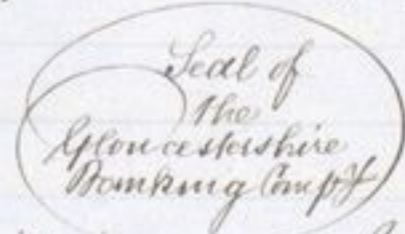 Seal of
the
Gloucestershire
Banking Compy